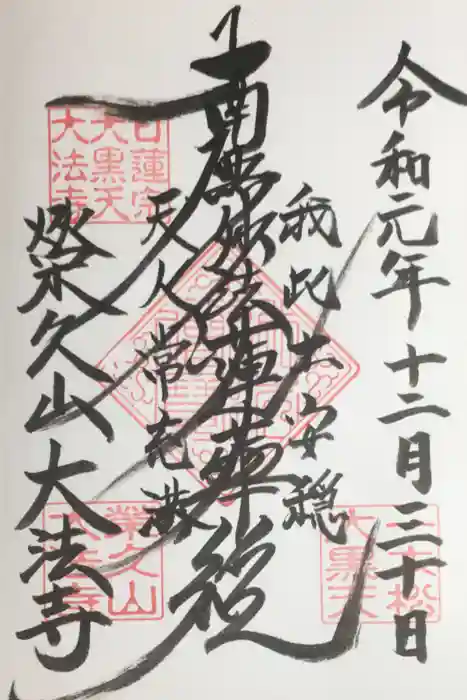 令和元年十二月三十日
我此土安穏
南無妙法蓮華経
天人常充満
榮久山大法寺
日蓮宗
大黒天
大法寺
三本松
大黒天
榮久山
大法寺